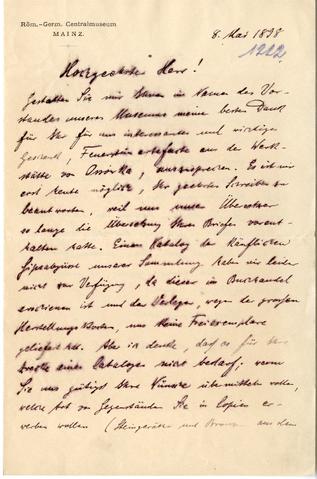 Röm.-Germ. Centralmuseum
MAINZ.
8. Mai 1898
1222
Hochgeehrter Herr!
Gestatten Sie mir Ihnen im Namen des Vor-
standes unseres Museums meinen besten Dank
für Ihr für uns interessantes und wichtiges
Geschenk, Feuersteinartefacte aus der Werk-
stätte von auszusprechen. Es ist mir
erst heute möglich, Ihr geehrtes Schreiben zu
beantworten, weil uns unser Übersetzer
so lange die Übersetzung Ihres Briefes vorent-
halten hatte. Einen Katalog der käuflichen
Gipsabgüsse unserer Sammlung habe ich leider
nicht zur Verfügung, da dieser im Buchhandel
erschienen ist und der Verleger, wegen der grossen
Herstellungskosten, uns keine Freiexemplare
geliefert hat. Aber ich denke, dass es für Ihre
Zwecke eines Cataloges nicht bedarf; wenn
Sie uns gütigst Ihre Wünsche übermitteln wollen,
welche Art von Gegenständen Sie in Copien er-
werben wollen (Steingeräthe und Bronzen aus dem